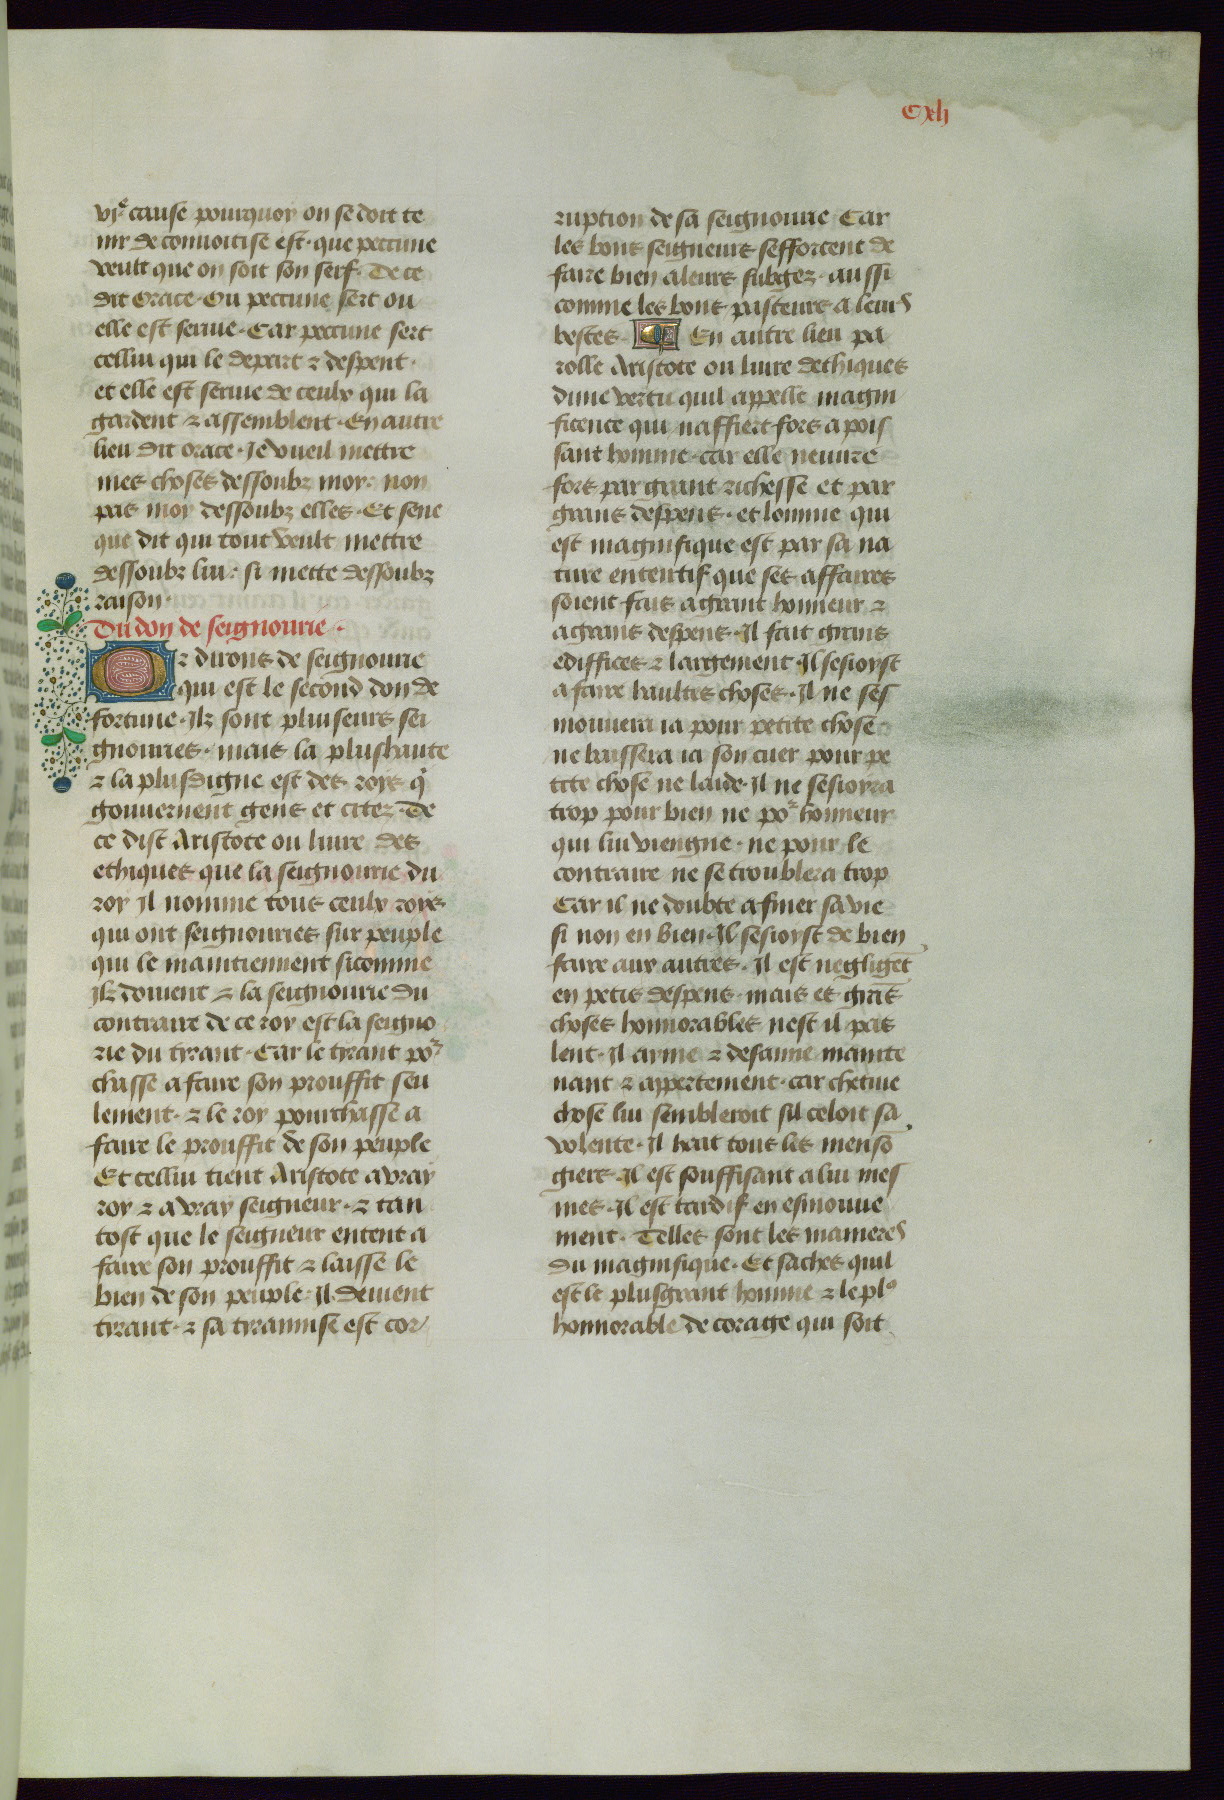 Cxli
vie cause pourquoy on se doit te
nir de convoitise est · que peccune
veult que on soit son serf · De ce
dit Orace · Ou peccune sert ou
elle est serue · Car peccune sert
cellui qui le depart ⁊ despent ·
et elle est serue de ceulx qui la
gardent ⁊ assemblent · En autre
lieu dit orace · Je vueil mettre
mes choses dessoubz moy : non
pas moy dessoubz elles · Et sene
que dit qui tout veult mettre
dessoubz lui : si mette dessoubz
raison ·
Du don de seignourie ·
Or dirons de seignourie
qui est le second don de
fortune · Ilz sont pluiseurs sei
gnouries · mais la plushaute
⁊ la plusdigne est des roys qͥ
gouuernent gens et citez · De
ce dist Aristote ou liure des
ethiques que la seignourie du
roy Il nomme tous ceulx roys
qui ont seignouries sur peuple
qui le maintiennent sicomme
Ilz doiuent ⁊ la seignourie du
contraire de ce roy est la seigno
rie du tyrant · Car le tyrant poʳ
chasse a faire son prouffit seu
lement · ⁊ le roy pourchasse a
faire le prouffit de son peuple
Et cellui tient Aristote a vray
roy ⁊ a vray seigneur · ⁊ tan
tost que le seigneur entent a
faire son prouffit ⁊ laisse le
bien de son peuple · Il deuient
tyrant · ⁊ sa tyrannise est cor
ruption de sa seignourie Car
les bons seigneurs sefforcent de
faire bien a leurs subgez · aussi
comme les bons pasteurs a leurs
bestes · En autre lieu pa
rolle Aristote ou liure dethiques
dune vertu quil appelle magni
ficence qui naffiert fors a pois
sant homme · car elle neuure
fors par grant richesse et par
grans despens · et lomme qui
est magnifique est par sa na
ture ententif que ses affaires
soient fais a grant honneur ⁊
a grans despens · Il fait grans
ediffices ⁊ largement · Il sesioyst
a faire haultes choses · Il ne ses
mouuera ia pour petite chose
ne baissera ia son cuer pour pe
tite chose ne laide · Il ne sesioyra
trop pour bien ne poʳ honneur
qui lui viengne · ne pour le
contraire ne se troublera trop
Car il ne doubte a finer sa vie
si non en bien · Il sesioyst de bien
faire aux autres · Il est negligēt
en petis despens · mais es grās
choses honnorables nest il pas
lent · Il aime ⁊ desaime mainte
nant ⁊ appertement · car chetiue
chose lui sembleroit sil celoit sa
volente · Il heit tous les menso
giers · Il est souffisant a lui mes
mes · Il est tardif en esmouue
ment · Telles sont les manieres
du magnifique · Et saches quil
est le plusgrant homme ⁊ le plꝰ
honnorable de corage qui soit